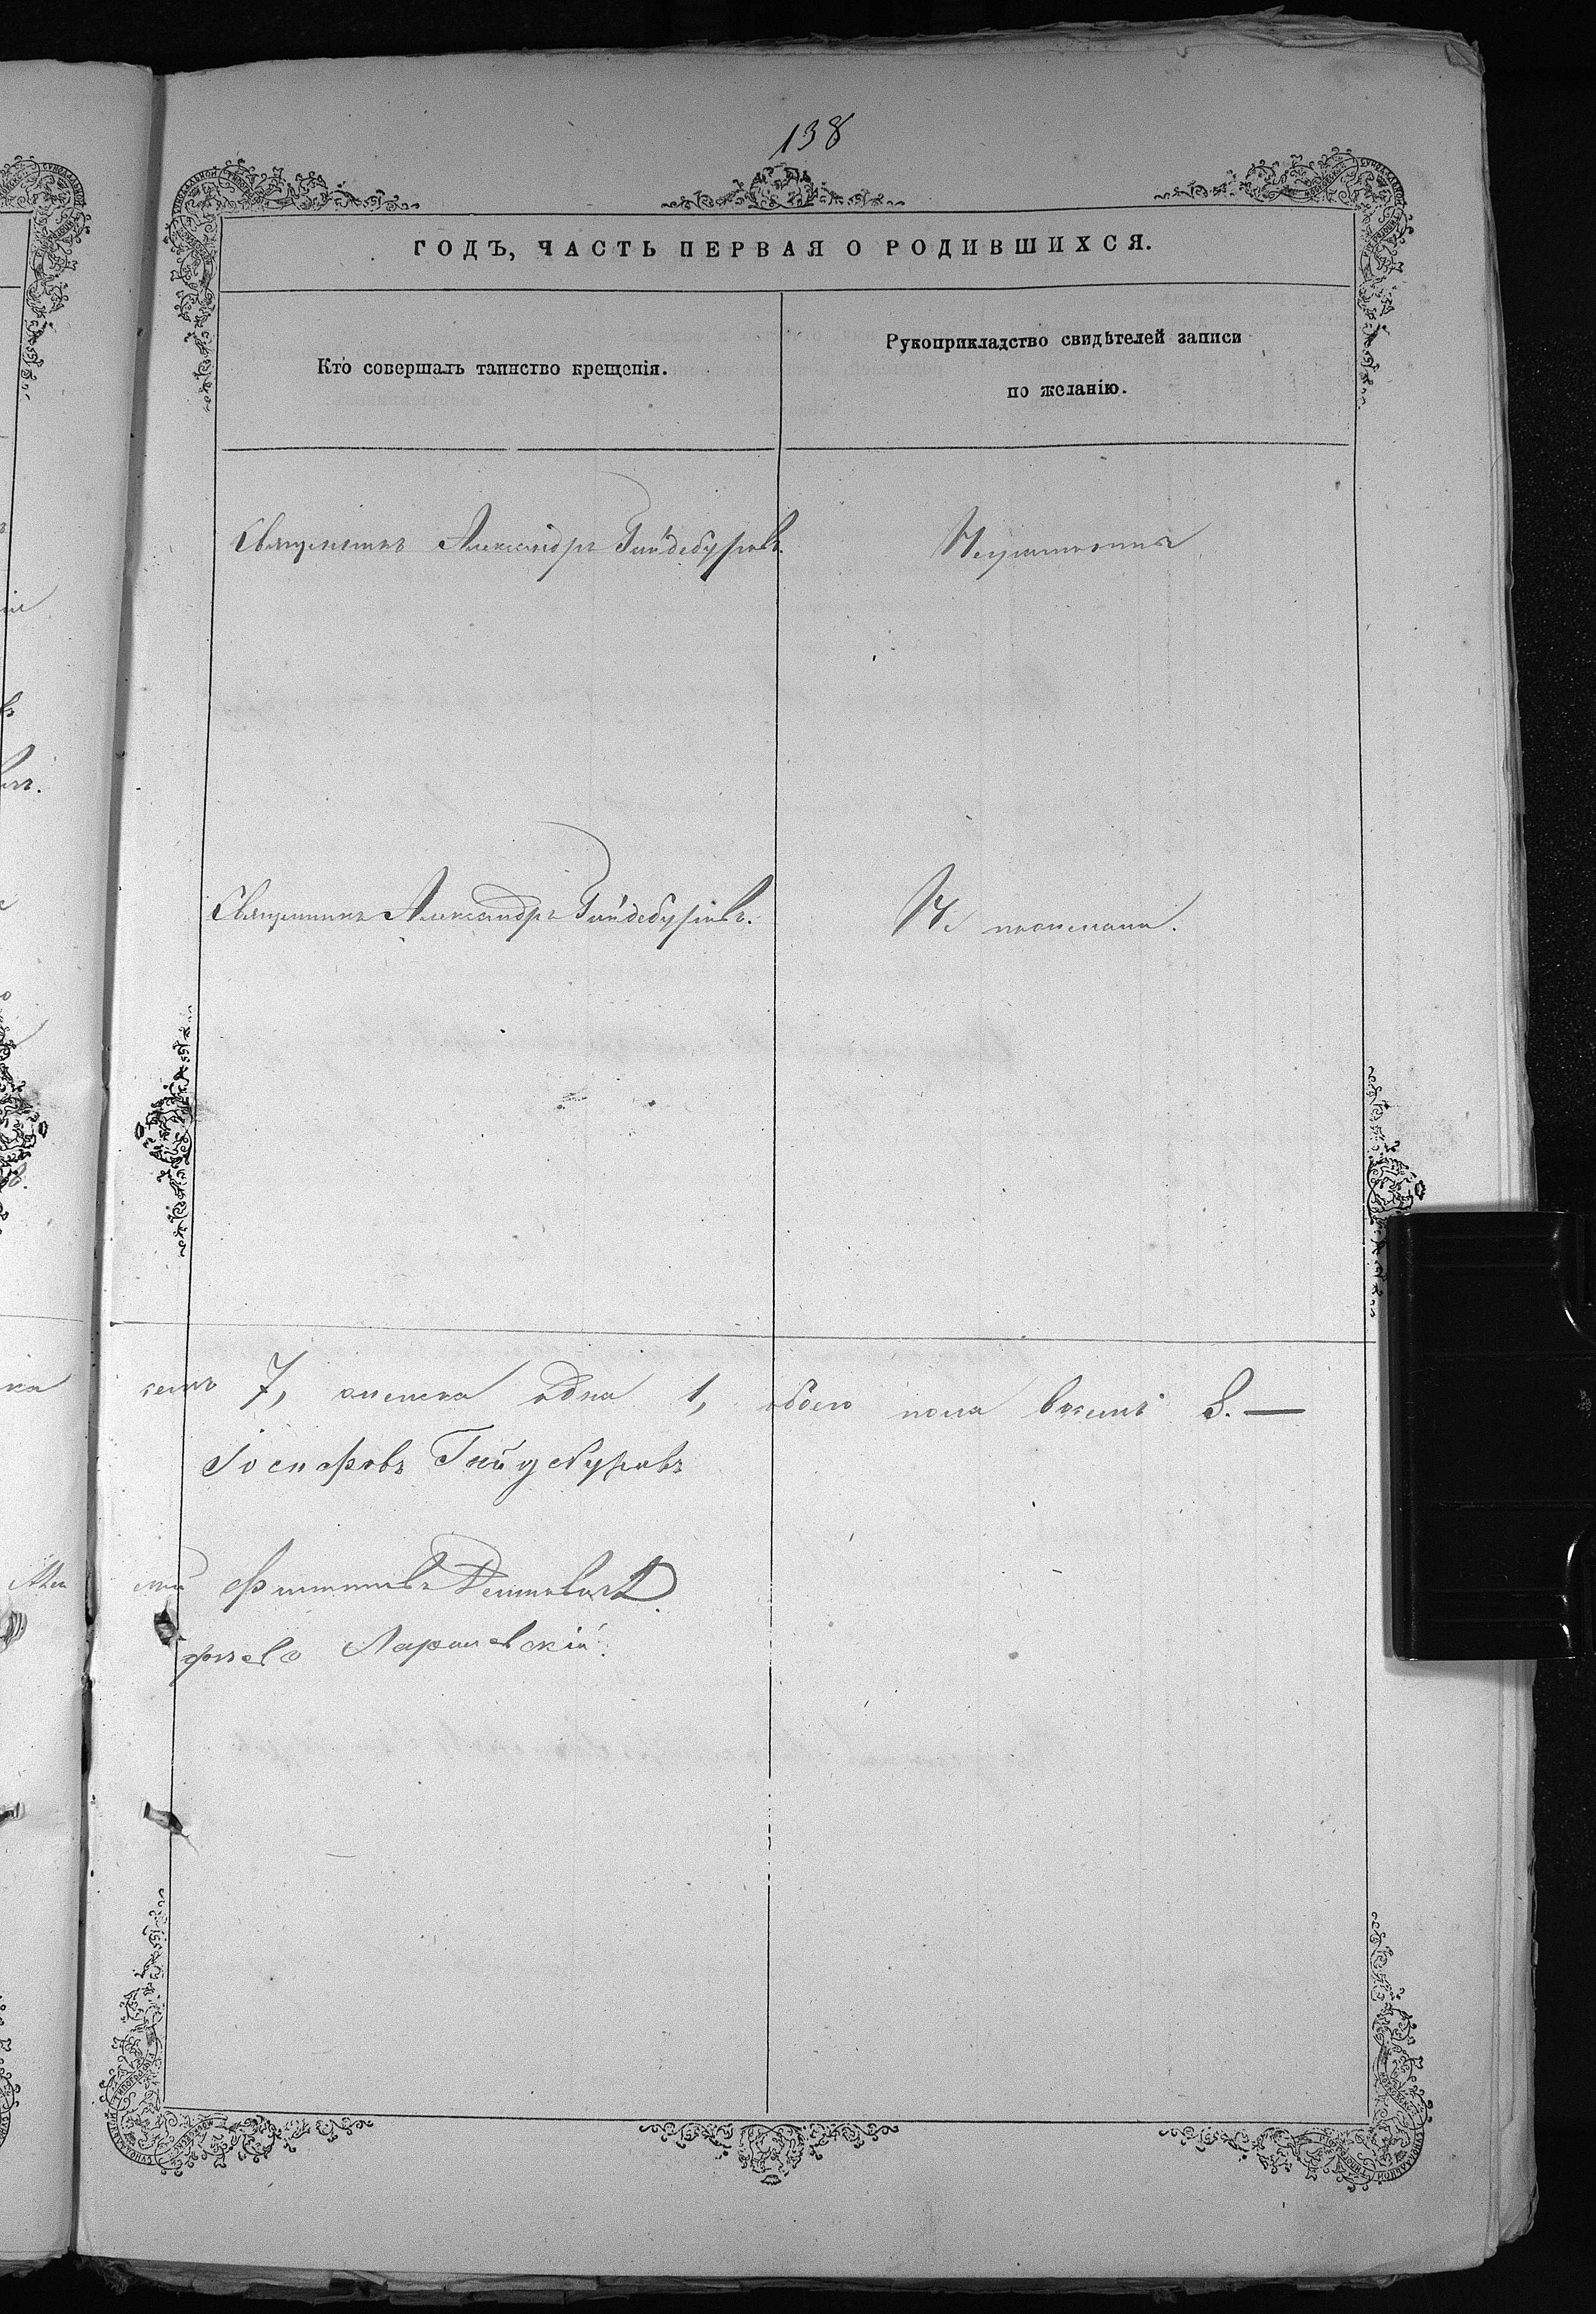 138
ГОДЪ, ЧАСТЬ ПЕРВАЯ О РОДИВШИХСЯ.
Кто совершалъ таинство крещенія.
Рукоприкладство свидѣтелей записи
по желанію.
Священникъ Александръ Гайдебуровъ.
Неграмотны
Священникъ Александръ Гайдебуровъ.
Не пожелали.
7, женска одна 1, обоего пола всемъ 8. —
Іосифовъ Гайдебуровъ
Филиповъ